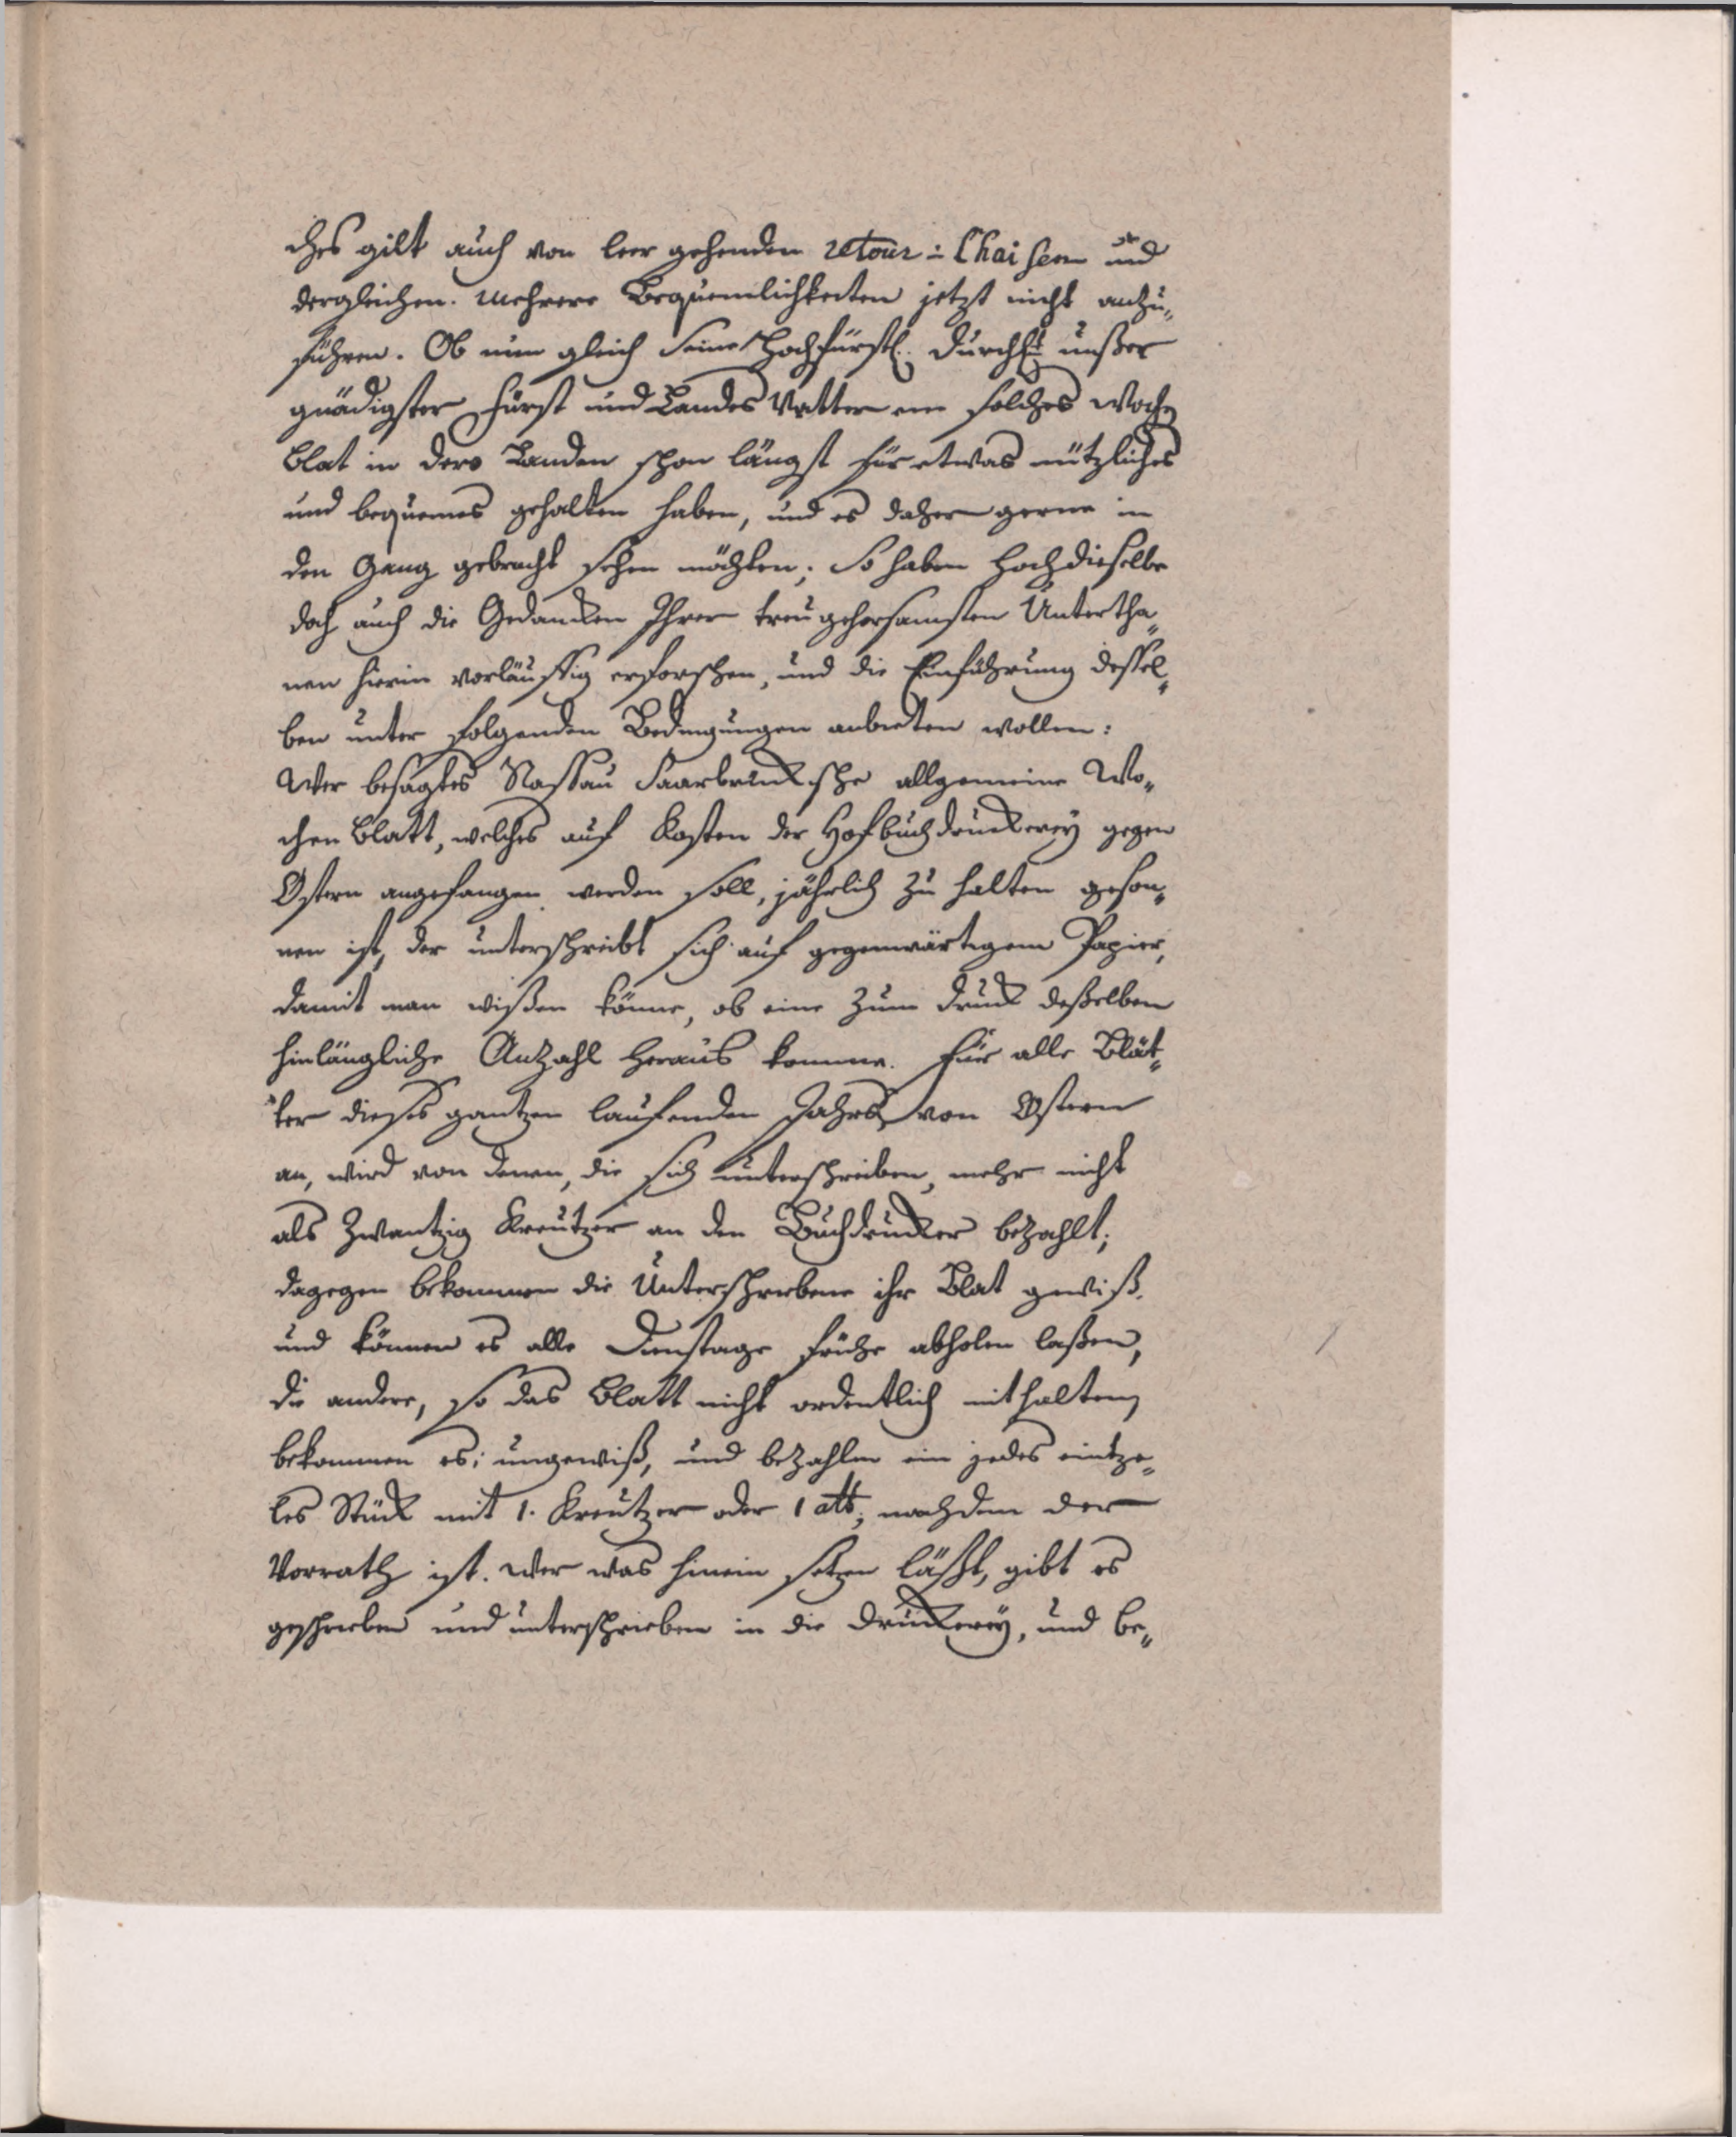 ches gilt auch von leer gehenden retour-Chaisen und
dergleichen. Mehrere Bequemlichkeiten jetzt nicht anzu-
führen. Ob nun gleich Seine Hochfürstl. Durchlt unßer
gnädigster Fürst und Landes Vatter ein solches Wochen
blat in dero Landen schon längst für etwas nützliches
und bequemes gehalten haben, und es daher gerne in
den Gang gebracht sehen möchten; So haben Hochdieselbe
doch auch die Gedancken Ihrer treugehorsamsten Untertha-
nen hierin vorläuffig erforschen, und die Einführung dessel-
ben unter folgenden Bedingungen anbieten wollen:
Wer besagtes Nassau Saarbrückische allgemeine Wo-
chen Blatt, welches auf Kosten der Hofbuchdruckerey gegen
Ostern angefangen werden soll, jährlich zu halten geson-
nen ist, der unterschreibt sich auf gegenwärtigem Papier,
damit man wißen könne, ob eine zum Druck deßelben
hinlängliche Anzahl heraus komme. Für alle Blät-
ter dieses gantzen laufenden Jahrs von Ostern
an, wird von denen, die sich unterschreiben, mehr nicht
als Zwantzig Kreutzer an den Buchdrucker bezahlt;
dagegen bekommen die Unterschriebene ihr Blat gewiß.
und können es alle Dienstage frühe abholen laßen,
die andere, so das Blatt nicht ordentlich mithalten,
bekommen es; ungewiß, und bezahlen ein jedes eintze-
les Stück mit 1. Kreutzer oder 1 alb, nachdem der
Vorrath ist. Wer was hinein setzen läßt, gibt es
geschrieben und unterschrieben in die Druckerey, und be-